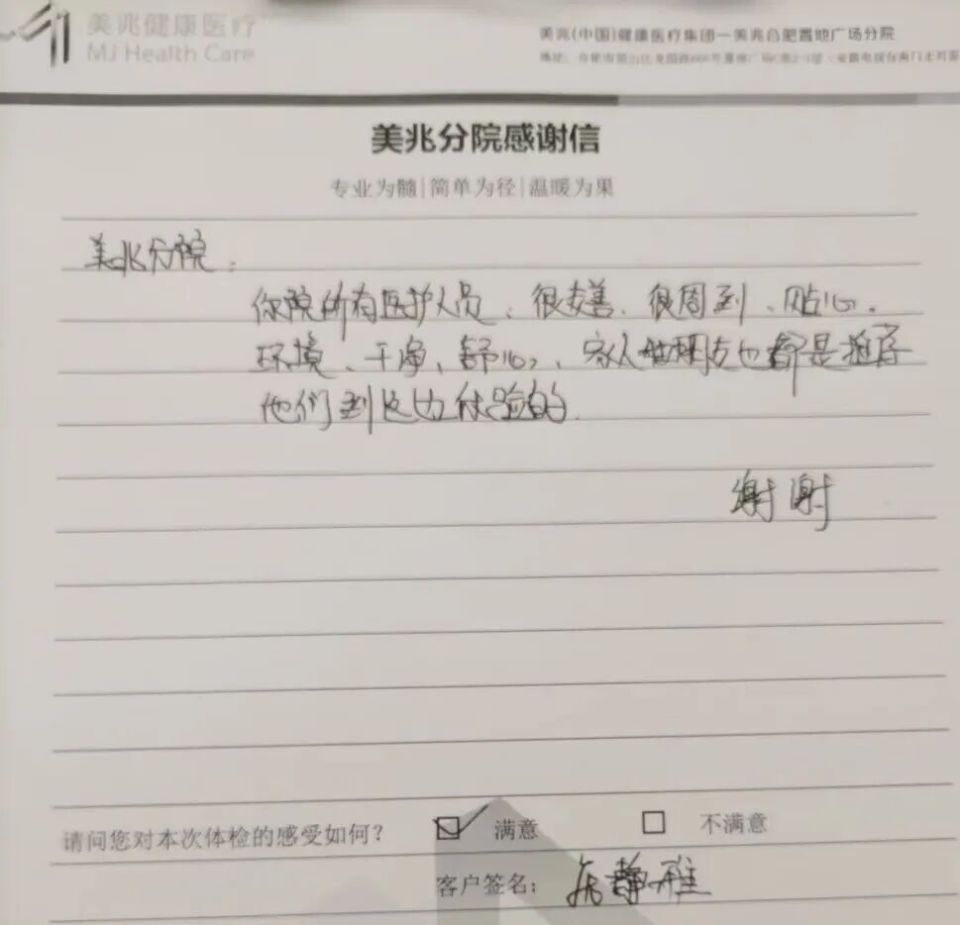 美兆健康医疗
MJ Health Care
美兆(中国)健康医疗集团一美兆合肥置地广场分院
美兆分院感谢信
专业为髓|简单为径|温暖为果
美兆分院：
你院所有医护人员、很友善、很周到、贴心.
环境、干净、舒心、家人 朋友也都是推荐
他们到这边体验的.
谢谢
请问您对本次体检的感受如何？ 满意 不满意
客户签名： 静雅